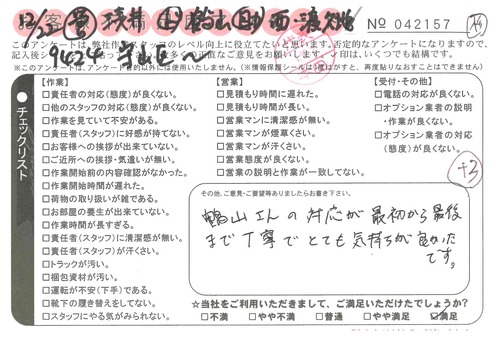 No 042157
このアンケートは、弊社作業スタッフのレベル向上に役立てたいと思います。否定的なアンケートになりますので、
9624
※このアンケートは、アンケート目的以外には使用いたしません。(※情報保護シールは1度がすと、再度貼りなおすことはできません)
チェックリスト
【作業】
□責任者の対応(態度)が良くない。
□他のスタッフの対応(態度)が良くない。
□作業を見ていて不安がある。
□責任者(スタッフ)に好感が持てない。
□お客様への挨拶が出来ていない。
□ご近所への挨拶・気遣いが無い。
□作業開始前の内容確認がなかった。
□作業開始時間が遅れた。
□荷物の取り扱いが雑である。
□お部屋の養生が出来ていない。
□作業時間が長すぎる。
□責任者(スタッフ)に清潔感が無い。
□責任者(スタッフ)が汗くさい。
□トラックが汚い。
□梱包資材が汚い。
□運転が不安(下手)である。
□靴下の履き替えをしてない。
□スタッフにやる気がみられない。
【営業】
□見積もり時間に遅れた。
□見積もり時間が長い。
□営業マンに清潔感が無い。
□営業マンが煙草くさい。
□営業マンが汗くさい。
□営業態度が良くない。
□営業の説明と作業が一致してない。
【受付・その他】
□電話の対応が良くない。
□オプション業者の説明
・作業が良くない。
□オプション業者の対応
(態度)が良くない。
+3
その他、ご意見・ご要望等ありましたらお書き下さい。
鶴山さんの対応が最初から最後
まで丁寧でとても気持ちが良かった
です。
☆当社をご利用いただきまして、ご満足いただけたでしょうか?
□不満 □やや不満 □普通 □やや満足 ☑満足